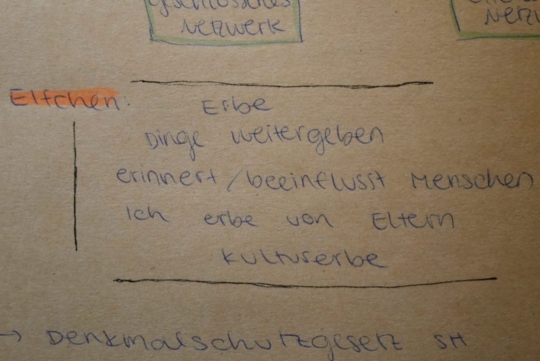 Netzwerk
Elfchen:
Erbe
Dinge weitergeben
erinnert/beeinflusst Menschen
Ich erbe von Eltern
Kulturerbe
→ Denkmalschutzgesetz SH